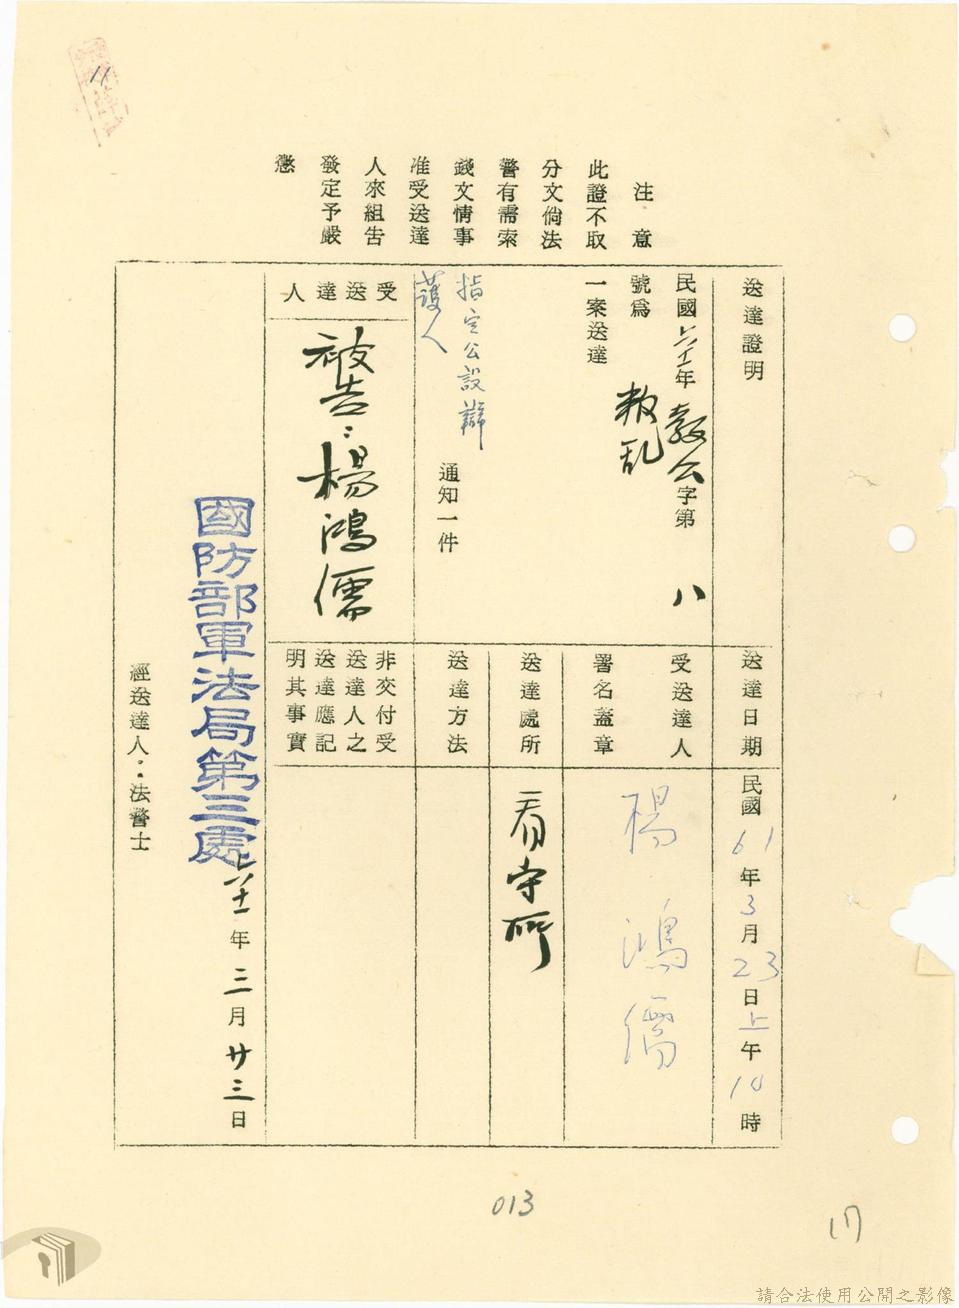 注意
此證不取
分文倘法
警有需索
錢文情事
准受送達
人來組告
發定予嚴
懲
送達證明
民國六十一年 公字第 八
號為 叛乱
一案送達
指定公設辯
護人
通知一件
受送達人
被告：楊鴻儒
送達日期
民國61年3月23日上午10時
受送達人
署名蓋章
楊鴻儒
送達處所
看守所
送達方法
非交付受
送達人之
送達應記
明其事實
國防部軍法局第三處
六十一年三月廿三日
經送達人：法警士
013
請合法使用公開之影像